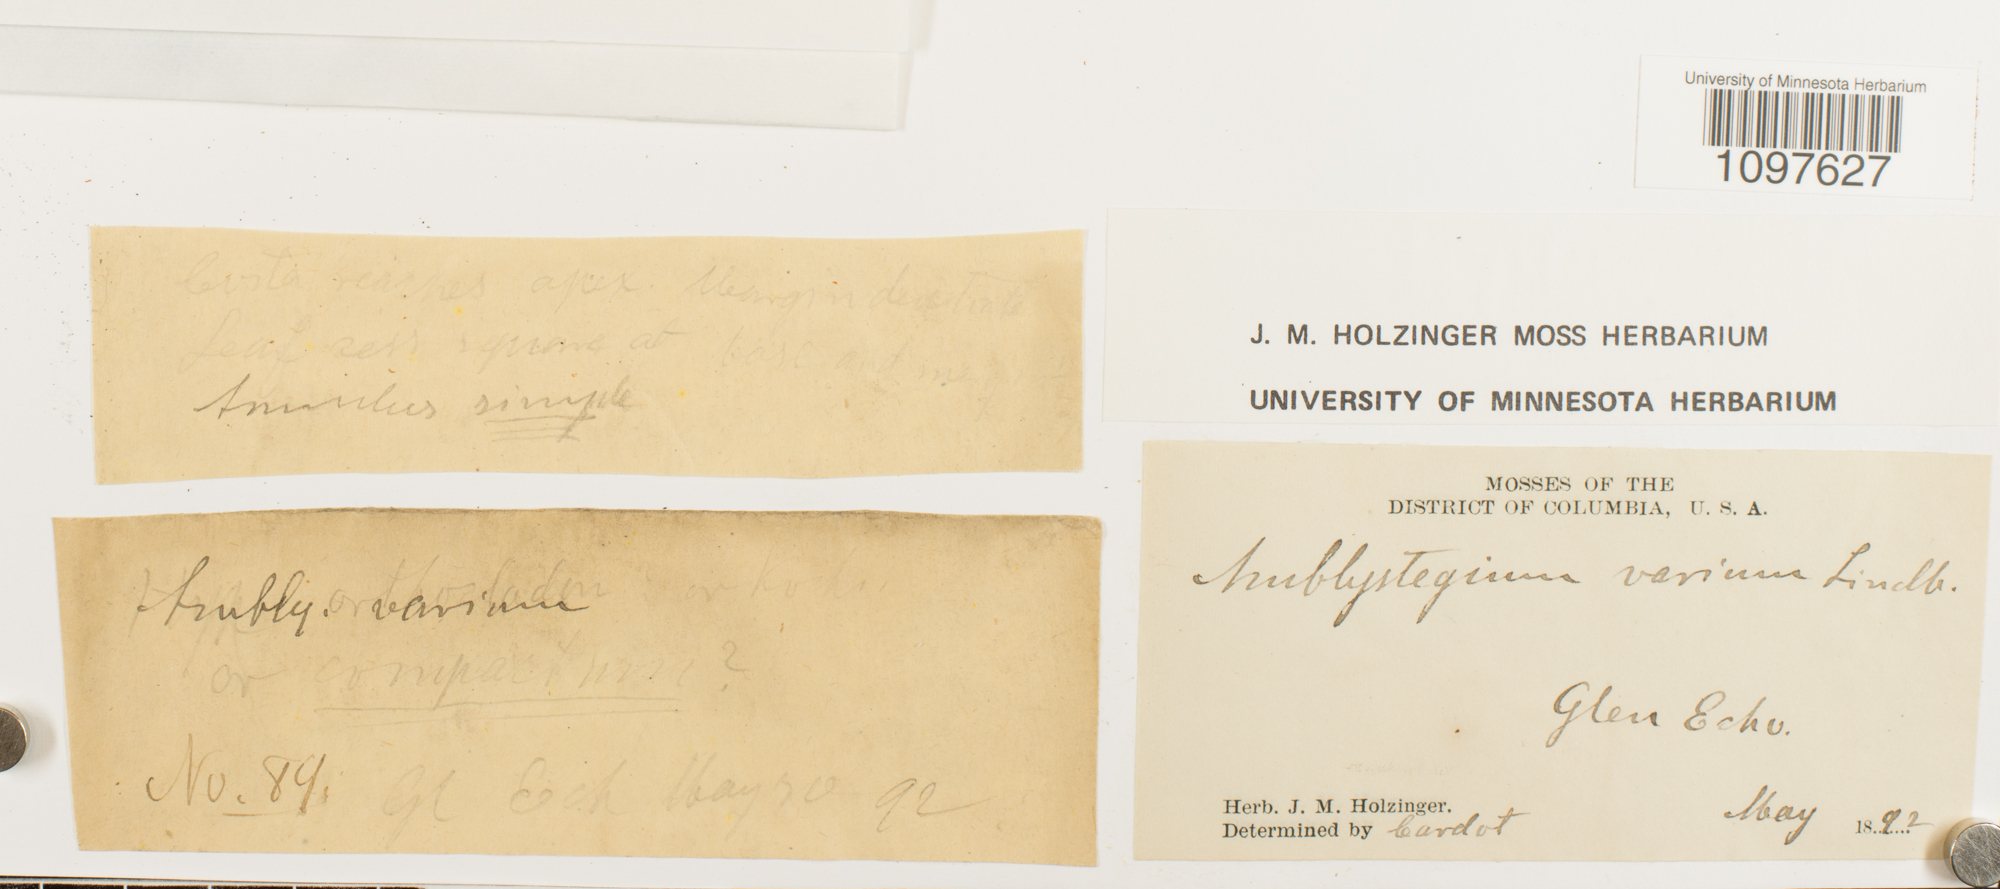 University of Minnesota Herbarium
1097627
Costa reaches apex. Margin denticulate
Leaf cells square at base and
Annulus simple
J. M. HOLZINGER MOSS HERBARIUM
UNIVERSITY OF MINNESOTA HERBARIUM
Ambly. varium
orthocladon
or compactum?
No. 84. Gl Ech May 92
MOSSES OF THE
DISTRICT OF COLUMBIA, U. S. A.
Amblystegium varium Lindb.
Glen Echo.
Herb. J. M. Holzinger.
Determined by Cardot
May 1892